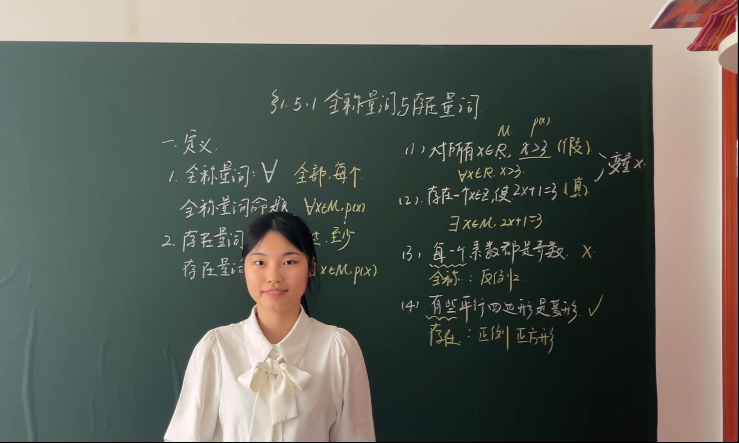 §1.5.1 全称量词与存在量词
一. 定义.
1. 全称量词: ∀ 全部, 每个
全称量词命题 ∀x∈M, p(x)
2. 存在量词 至少
存在量词 x∈M, p(x)
M p(x)
(1) 对所有x∈R, x>3 (假)
∀x∈R, x>3.
变量x.
(2). 存在一个x∈Z, 使2x+1=3 (真)
∃x∈M, 2x+1=3.
(3) 每一个素数都是奇数. ×
全称: 反例2
(4) 有些平行四边形是菱形. ✓
存在: 正例 正方形